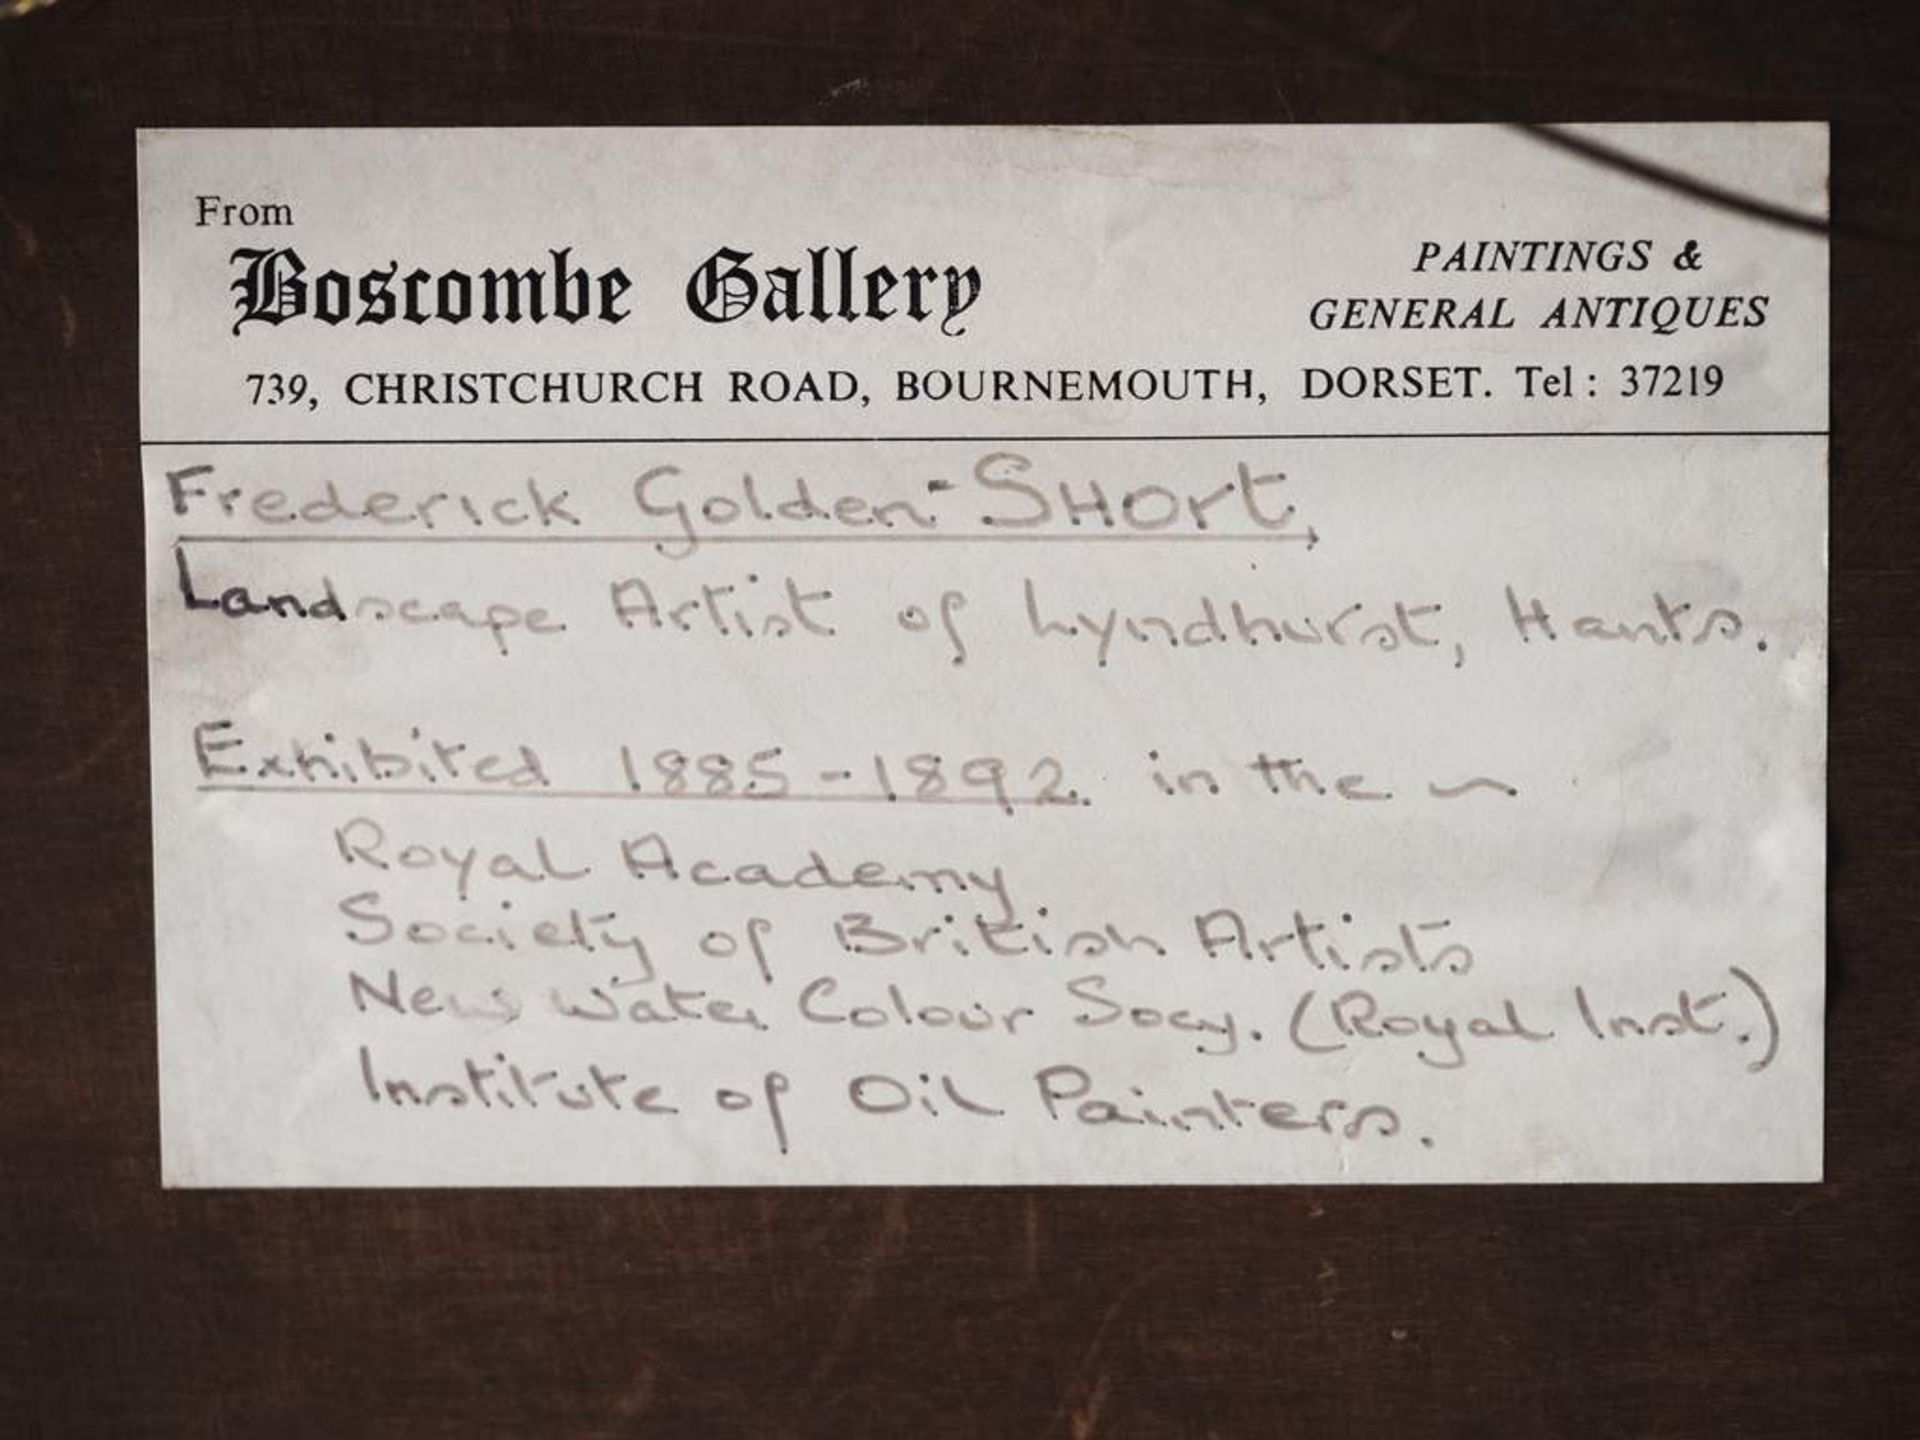 From
Boscombe Gallery
PAINTINGS &
GENERAL ANTIQUES
739, CHRISTCHURCH ROAD, BOURNEMOUTH, DORSET. Tel : 37219
Frederick Golden-SHOrt,
Landscape Artist of Lyndhurst, Hants.
Exhibited 1885-1892. in the ~
Royal Academy
Society of British Artists
New Water Colour Socy. (Royal Inst.)
Institute of Oil Painters.